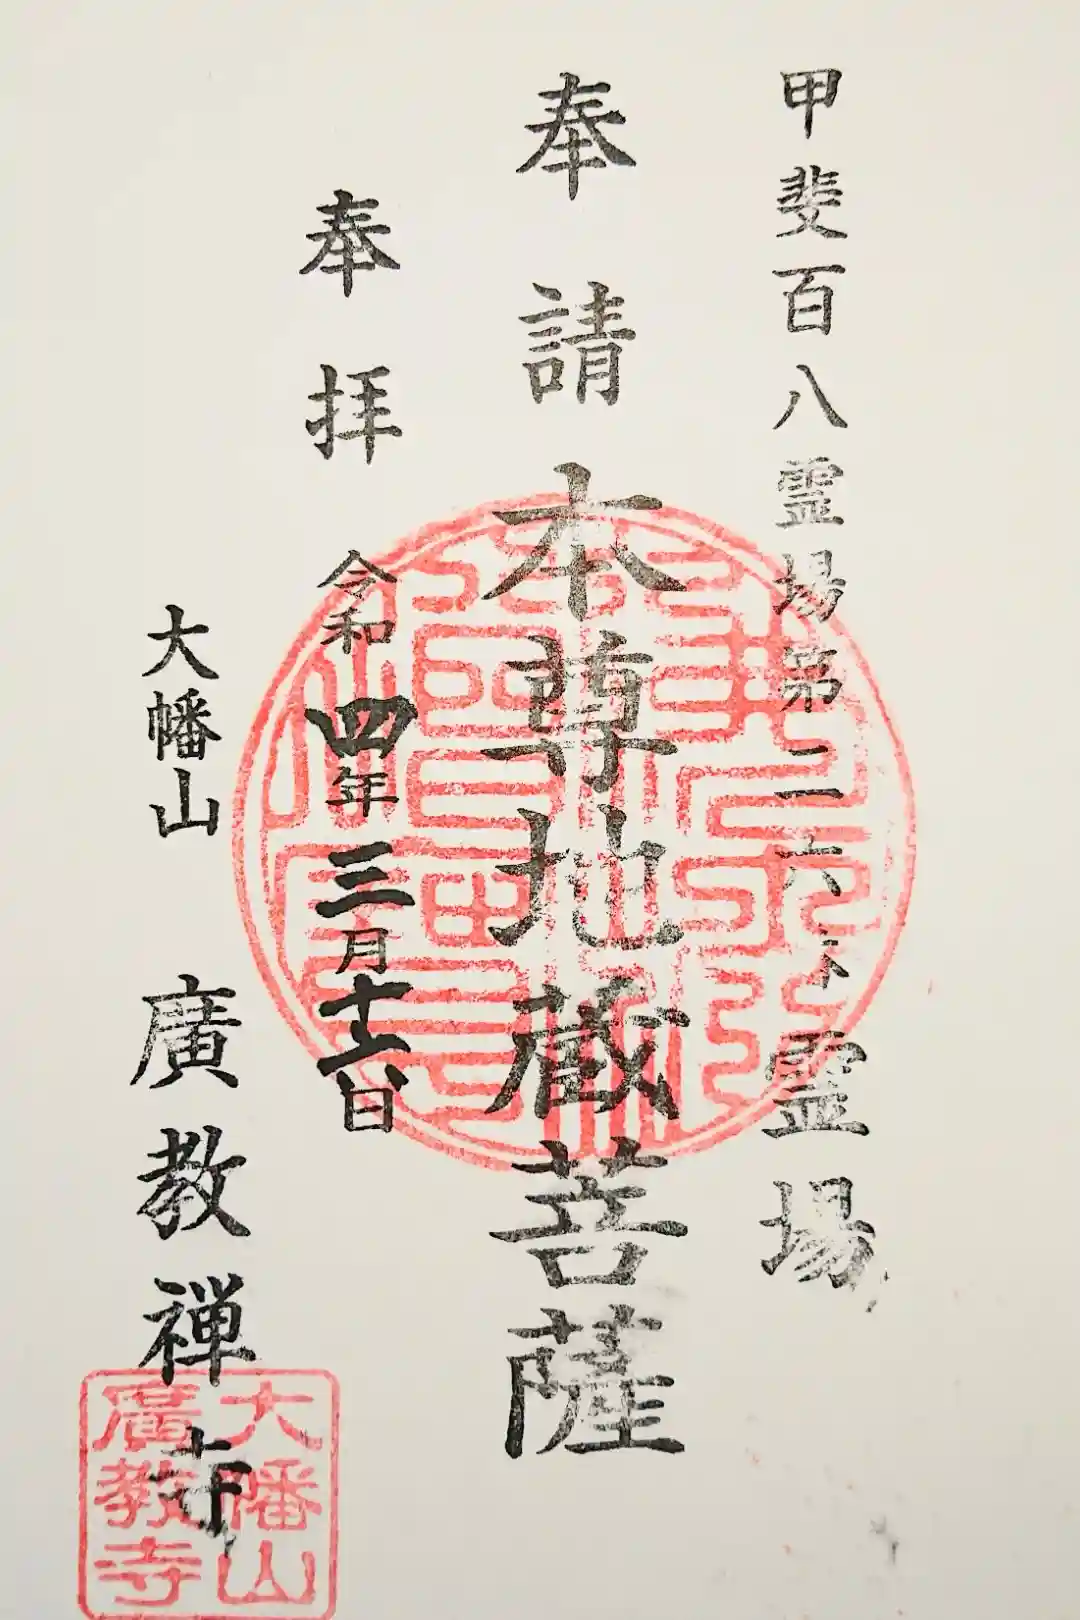 甲斐百八霊場第二六霊場
奉請本尊地蔵菩薩
奉拝 令和四年三月十日
大幡山 廣教禅寺
大幡山
廣教寺